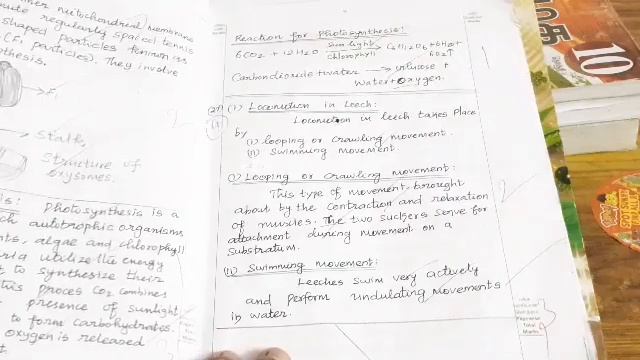 mitochondrial membrane
regularly spaced tennis
shaped particles
(F₁ particles). They involve
F₁
Stalk
Structure of
oxysomes.
Photosynthesis is a
autotrophic organisms,
algae and chlorophyll
utilize the energy
to synthesize their
this proces CO₂ combines
presence of sunlight
to form carbohydrates.
oxygen is released
Reaction for Photosynthesis:
6CO₂ + 12H₂O Sun light C₆H₁₂O₆ + 6H₂O +
chlorophyll 6O₂↑
Carbondioxide + water → Glucose +
Water + Oxygen.
(i) Locomotion in Leech:
Locomotion in leech takes Place
by
(i) Looping or Crawling movement.
(ii) Swimming movement.
(i) Looping or Crawling movement:
This type of movement brought
about by the Contraction and relaxation
of muscles. The two suckers serve for
attachment during movement on a
Substratum.
(ii) Swimming movement:
Leeches swim very actively
and perform undulating movements
in water.
Total
Marks